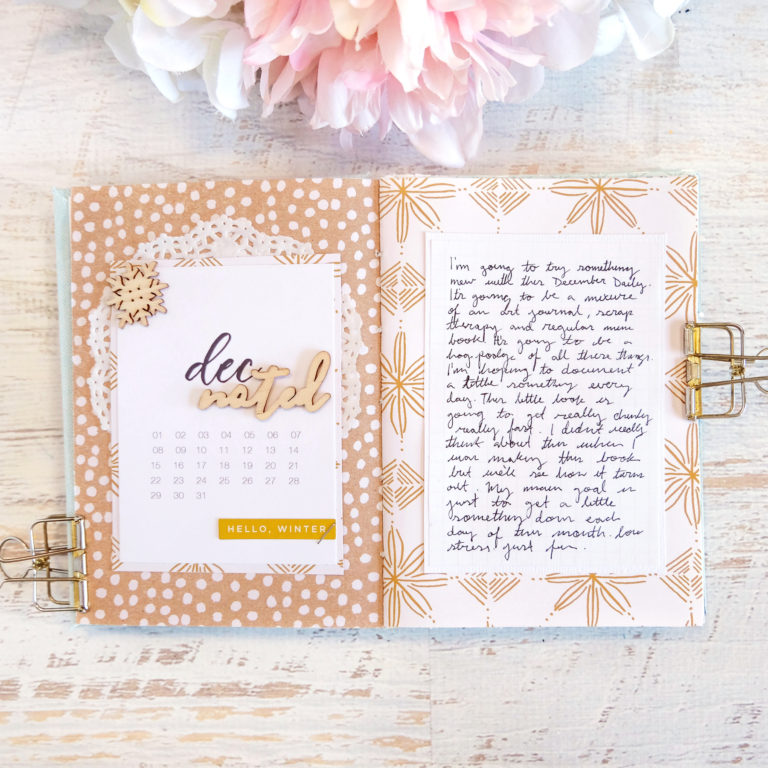 dec
noted
01 02 03 04 05 06 07
08 09 10 11 12 13 14
15 16 17 18 19 20 21
22 23 24 25 26 27 28
29 30 31
HELLO, WINTER
I'm going to try something
new with this December Daily.
It's going to be a mixture
of an art journal, scrap
therapy and regular mini
book. It's going to be a
hog podge of all these things.
I'm hoping to document
a little something every
day. This little book is
going to get really chunky
really fast. I didn't really
think about this when I
was making this book
but we'll see how it turns
out. My main goal is
just to get a little
something down each
day of this month. low
stress just fun.